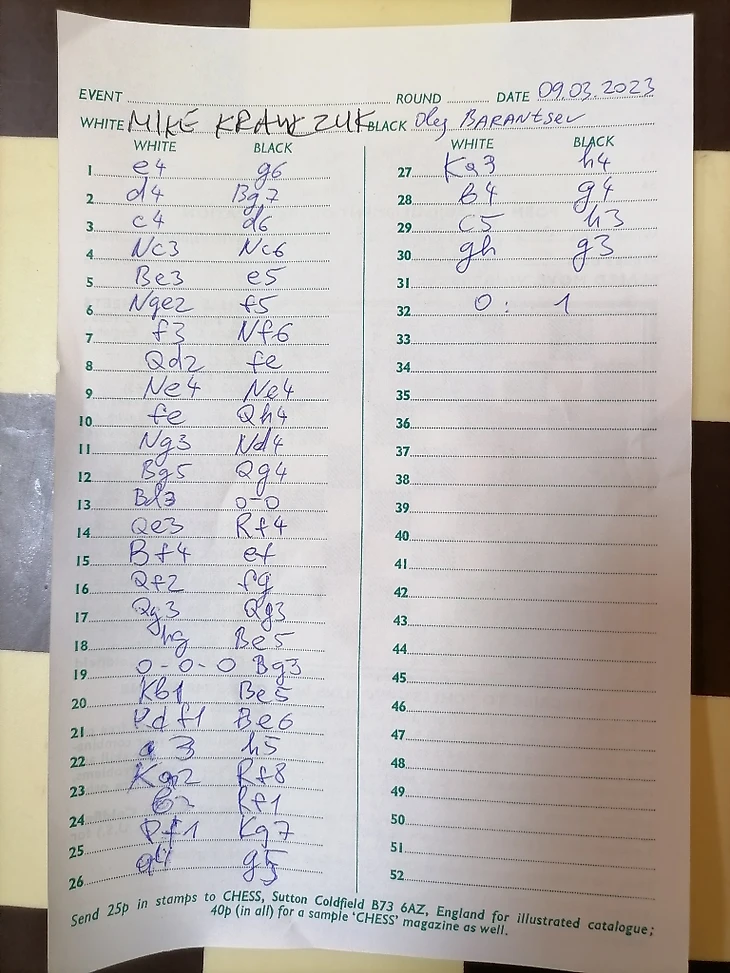 EVENT ROUND DATE 09.03.2023
WHITE MIKE KRAWCZUK BLACK Oleg BARANtsev
WHITE BLACK
1 e4 g6
2 d4 Bg7
3 c4 d6
4 Nc3 Nc6
5 Be3 e5
6 Nge2 f5
7 f3 Nf6
8 Qd2 fe
9 Ne4 Ne4
10 fe Qh4
11 Ng3 Nd4
12 Bg5 Qg4
13 Bd3 0-0
14 Qe3 Rf4
15 Bf4 ef
16 Qf2 fg
17 Qg3 Qg3
18 hg Be5
19 0-0-0 Bg3
20 Kb1 Be5
21 Rdf1 Be6
22 a3 h5
23 Ka2 Rf8
24 Rf1
25 Rf1 Kg7
26 g5
WHITE BLACK
27 Ka3 h4
28 B4 g4
29 C5 h3
30 gh g3
31
32 0 : 1
33
34
35
36
37
38
39
40
41
42
43
44
45
46
47
48
49
50
51
52
Send 25p in stamps to CHESS, Sutton Coldfield B73 6AZ, England for illustrated catalogue;
40p (in all) for a sample 'CHESS' magazine as well.